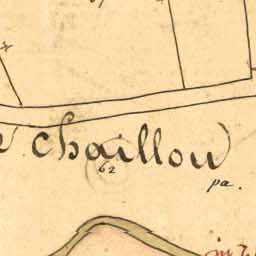 chaillou
62
pa.